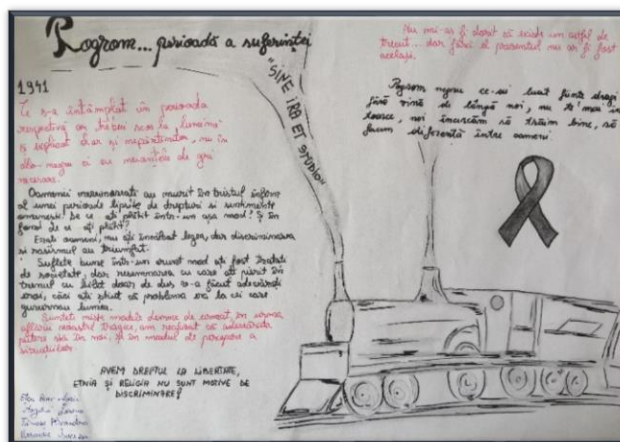 Pogrom... perioadă a suferinței
"SINE IRA ET STUDIO"
1941
Ce s-a întâmplat în perioada
respectivă ar trebui scos la lumină
și explicat clar și nepărtinitor, nu în
alb-negru ci cu nuanțele de gri
necesare.
Oameni nevinovați au murit în tristul infern
al unei perioade lipsite de drepturi și sentimente
omenești. De ce ați plătit într-un așa mod? Și în
fond de ce ați plătit?
Erați oameni, nu ați încălcat legea, dar discriminarea
și rasismul au triumfat.
Suflete bune într-un crunt mod ați fost tratați
de societate, dar resemnarea cu care ați pierit în
trenul cu bilet doar de dus v-a făcut adevărați
eroi, căci ați știut că problema era la cei care
guvernau lumea.
Sunteți niște modele demne de urmat, în urma
aflării nostru tragic, am realizat că adevărata
putere stă în noi, și în modul de percepere a
situațiilor.
AVEM DREPTUL LA LIBERTATE,
ETNIA ȘI RELIGIA NU SUNT MOTIVE DE
DISCRIMINARE!
Nu mi-aș fi dorit să existe un astfel de
trecut... dar fără el prezentul nu ar fi fost
același.
Pogrom negru ce-ai luat ființe dragi
fără vină de lângă noi, nu te mai
întoarce, noi încercăm să trăim bine, să
facem diferență între oameni.